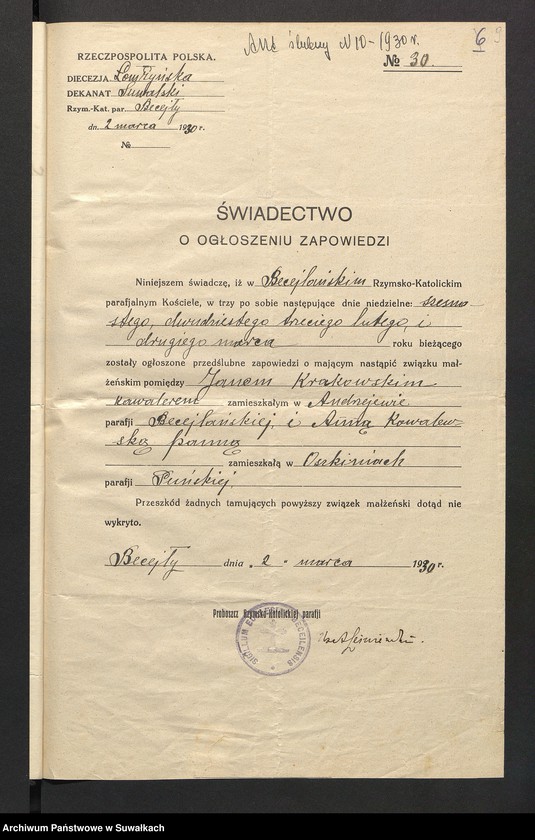 Akt ślubny N 10 - 1930 r.
6
9
№ 30.
RZECZPOSPOLITA POLSKA.
DIECEZJA Łomżyńska
DEKANAT Suwalski
Rzym.-Kat. par. Becejły
dn. 2 marca 1930 r.
№
ŚWIADECTWO
O OGŁOSZENIU ZAPOWIEDZI
Niniejszem świadczę, iż w Becejlańskim Rzymsko-Katolickim
parafjalnym Kościele, w trzy po sobie następujące dnie niedzielne: szesna-
stego, dwudziestego trzeciego lutego, i
drugiego marca roku bieżącego
zostały ogłoszone przedślubne zapowiedzi o mającym nastąpić związku mał-
żeńskim pomiędzy Janem Krakowskim
kawalerem zamieszkałym w Andrzejewie
parafji Becejlańskiej, i Anną Kowalew-
ską panną
zamieszkałą w Oszkiniach
parafji Puńskiej.
Przeszkód żadnych tamujących powyższy związek małżeński dotąd nie
wykryto.
Becejły dnia 2 marca 1930 r.
Proboszcz Rzymsko-Katolickiej parafji
SIGILLUM BECEILENSIS
Archiwum Państwowe w Suwałkach